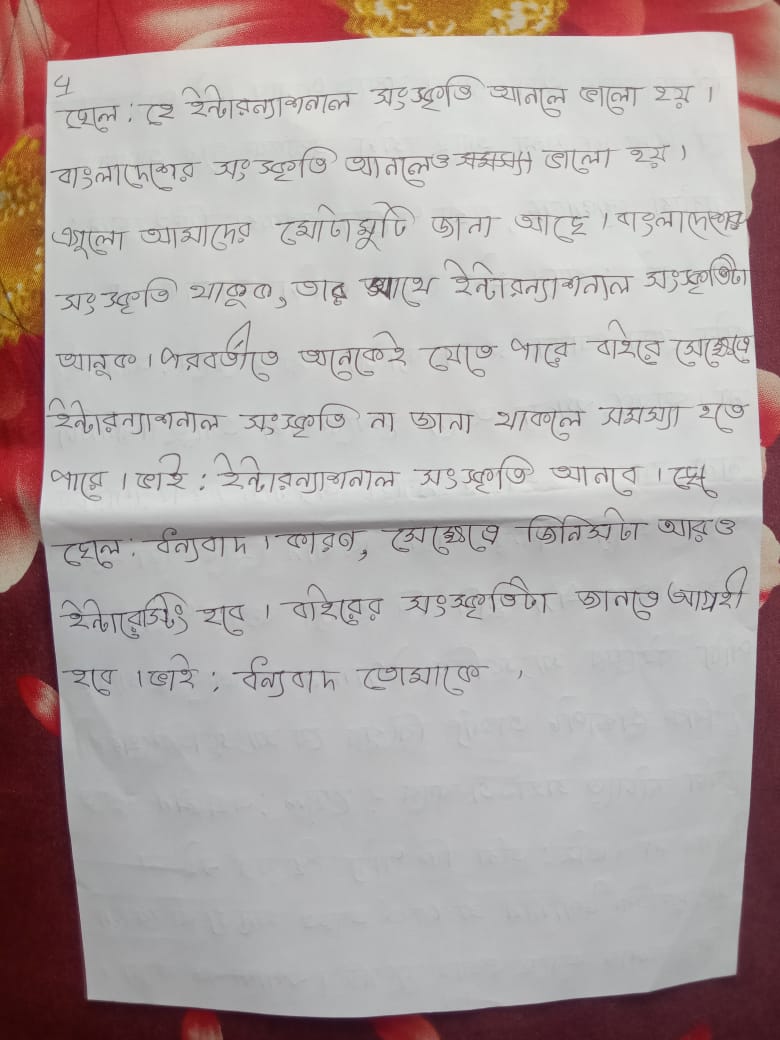 ৭
ছেলে : হে ইন্টারন্যাশনাল সংস্কৃতি আনলে ভালো হয় ।
বাংলাদেশের সংস্কৃতি আনলেও ভালো হয় ।
এগুলো আমাদের মোটামুটি জানা আছে । বাংলাদেশের
সংস্কৃতি থাকুক, তার সাথে ইন্টারন্যাশনাল সংস্কৃতিটা
আনুক । পরবর্তীতে অনেকেই যেতে পারে বাইরে সেক্ষেত্রে
ইন্টারন্যাশনাল সংস্কৃতি না জানা থাকলে সমস্যা হতে
পারে । ভাই : ইন্টারন্যাশনাল সংস্কৃতি আনবে ।
ছেলে : ধন্যবাদ । কারণ, সেক্ষেত্রে জিনিসটা আরও
ইন্টারেস্টিং হবে । বাইরের সংস্কৃতিটা জানতে আগ্রহী
হবে । ভাই : ধন্যবাদ তোমাকে ।